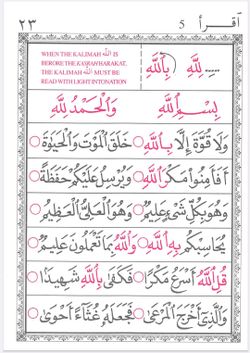 ٢٣ 5 أقرأ
WHEN THE KALIMAH الله IS
BERORE THE KASRAH HARAKAT.
THE KALIMAH الله MUST BE
READ WITH LIGHT INTONATION
لِلّٰهِ بِاللّٰهِ
بِسْمِ اللّٰهِ وَالْحَمْدُ لِلّٰهِ
وَلَا قُوَّةَ إِلَّا بِاللّٰهِ خَلَقَ الْمَوْتَ وَالْحَيٰوةَ
أَفَأَمِنُوا مَكْرَ اللّٰهِ وَيُرْسِلُ عَلَيْكُمْ حَفَظَةً
وَهُوَ بِكُلِّ شَيْءٍ عَلِيْمٌ وَهُوَ الْعَلِيُّ الْعَظِيْمُ
يُحَاسِبْكُمْ بِهِ اللّٰهُ وَاللّٰهُ بِمَا تَعْمَلُوْنَ عَلِيْمٌ
قُلِ اللّٰهُ أَسْرَعُ مَكْرًا فَكَفٰى بِاللّٰهِ شَهِيْدًا
وَالَّذِيْ أَخْرَجَ الْمَرْعٰى فَجَعَلَهُ غُثَآءً أَحْوٰى